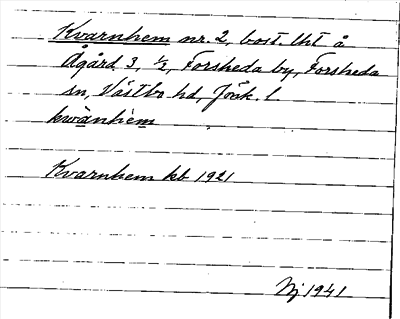 Kvarnhem nr. 2, bost. lht å
Ågård 3, 1/2, Forsheda by, Forsheda
sn, Västbo hd, Jönk. l
kwànhèm
Kvarnhem kb 1921
Nj 1941